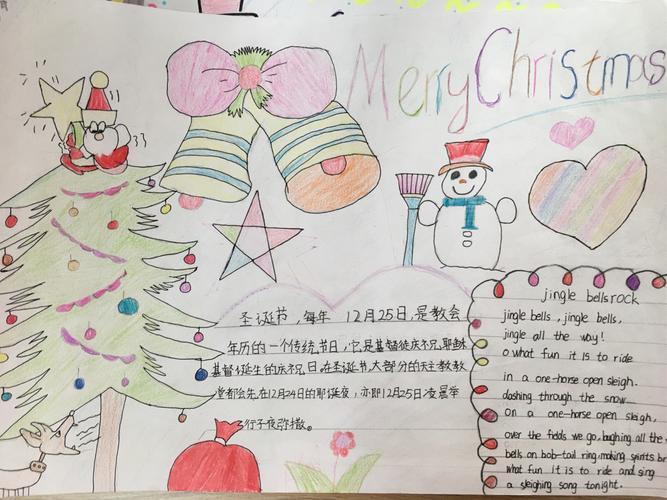 Merry Christmas
圣诞节，每年 12月25日，是教会
年历的一个传统节日，它是基督徒庆祝耶稣
基督诞生的庆祝日在圣诞节大部分的天主教教
堂都会先在12月24日的耶诞夜，亦即12月25日凌晨举
行子夜弥撒。
jingle bells rock
jingle bells , jingle bells,
jingle all the way!
o what fun it is to ride
in a one-horse open sleigh.
dashing through the snow
on a one-horse open sleigh,
over the fields we go, laughing all the
bells on bob-tail ring, making spirits br
what fun it is to ride and sing
a sleighing song tonight.